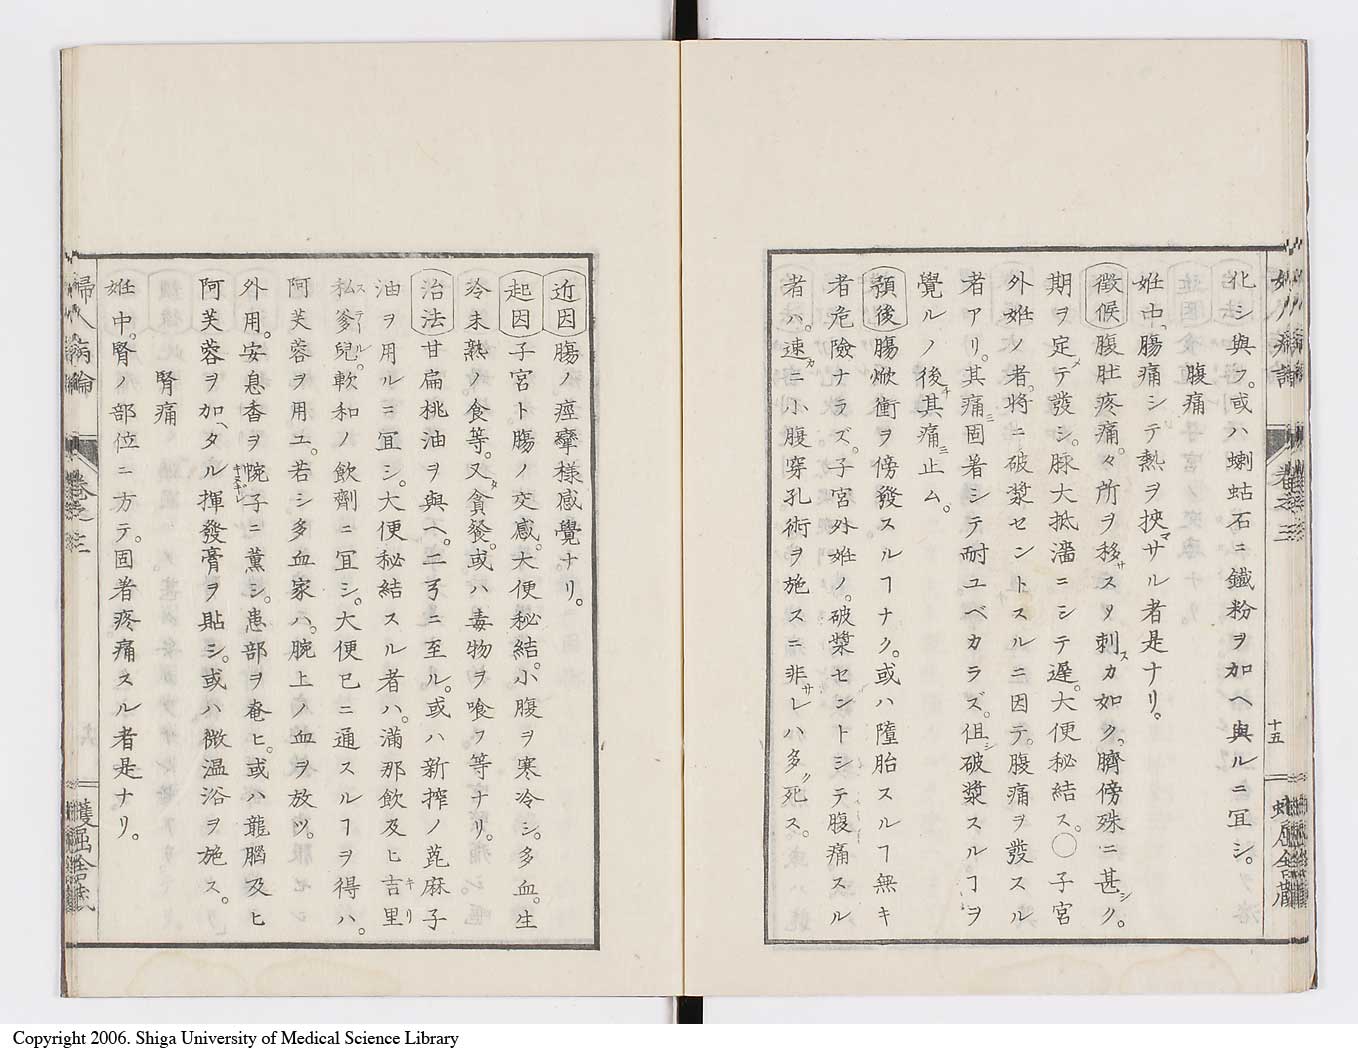 化シ與フ。或ハ蝲蛄石ニ鐵粉ヲ加ヘ與ルニ冝シ。
腹痛
姙中、腸痛シテ熱ヲ挾マサル者是ナリ。
徴候 腹肚疼痛。々所ヲ移サス乄刺スカ如ク、臍傍殊ニ甚シク。
期ヲ定メテ發シ。脉大抵濇ニシテ遲。大便秘結ス。〇子宮
外姙ノ者。將ニ破漿セントスルニ因テ。腹痛ヲ發スル
者アリ。其痛ニ固著シテ耐ユベカラズ。伹シ破漿スルヿヲ
覺ルノ後チ其痛ニ止ム。
預後 腸焮衝ヲ傍發スルヿナク。或ハ墮胎スルヿ無キ
者危險ナラズ。子宮外姙ノ。破漿セントシテ腹痛スル
者ハ。速カニ小腹穿孔術ヲ施スニ非サレハ多ク死ス。
十五
近因 腸ノ痙攣様感覺ナリ。
起因 子宮ト腸ノ交感。大便秘結。小腹ヲ寒冷シ。多血。生
冷未熟ノ食等。又タ貪餐。或ハ毒物ヲ喰フ等ナリ。
治法 甘扁桃油ヲ與ヘ。二弓ニ至ル。或ハ新搾ノ蓖麻子
油ヲ用ルニ冝シ。大便秘結スル者ハ。滿那飲及ヒ吉里キリ
私スデール爹兒。軟和ノ飲劑ニ冝シ。大便已ニ通スルヿヲ得ハ。
阿芙蓉ヲ用ユ。若シ多血家ハ。腕上ノ血ヲ放ツ。
外用。安息香ヲ院子ニ薫シ。患部ヲ奄ヒ。或ハ龍腦及ヒ
阿芙蓉ヲ加ヘタル揮發膏ヲ貼シ。或ハ微温浴ヲ施ス。
腎痛
姙中。腎ノ部位ニ方テ。固著疼痛スル者是ナリ。
婦人病論
卷之三
Copyright 2006. Shiga University of Medical Science Library